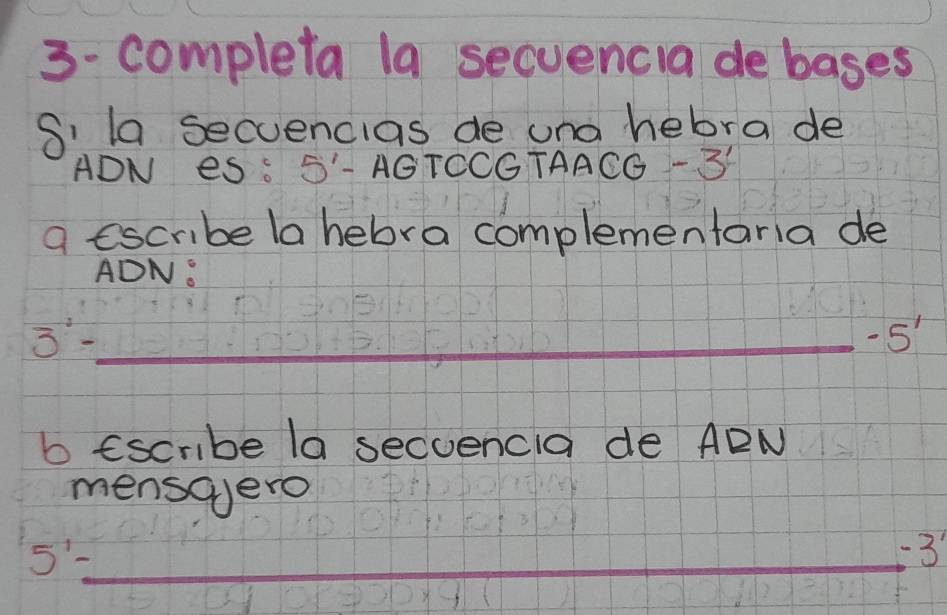 3- completa la secuencia de bases
Si la secuencias de una hebra de
ADN es: 5'- AGTCCGTAACG -3'
a Escribe la hebra complementaria de
ADN:
3'- -5'
b Escribe la secuencia de ARN
mensajero
5'- -3'